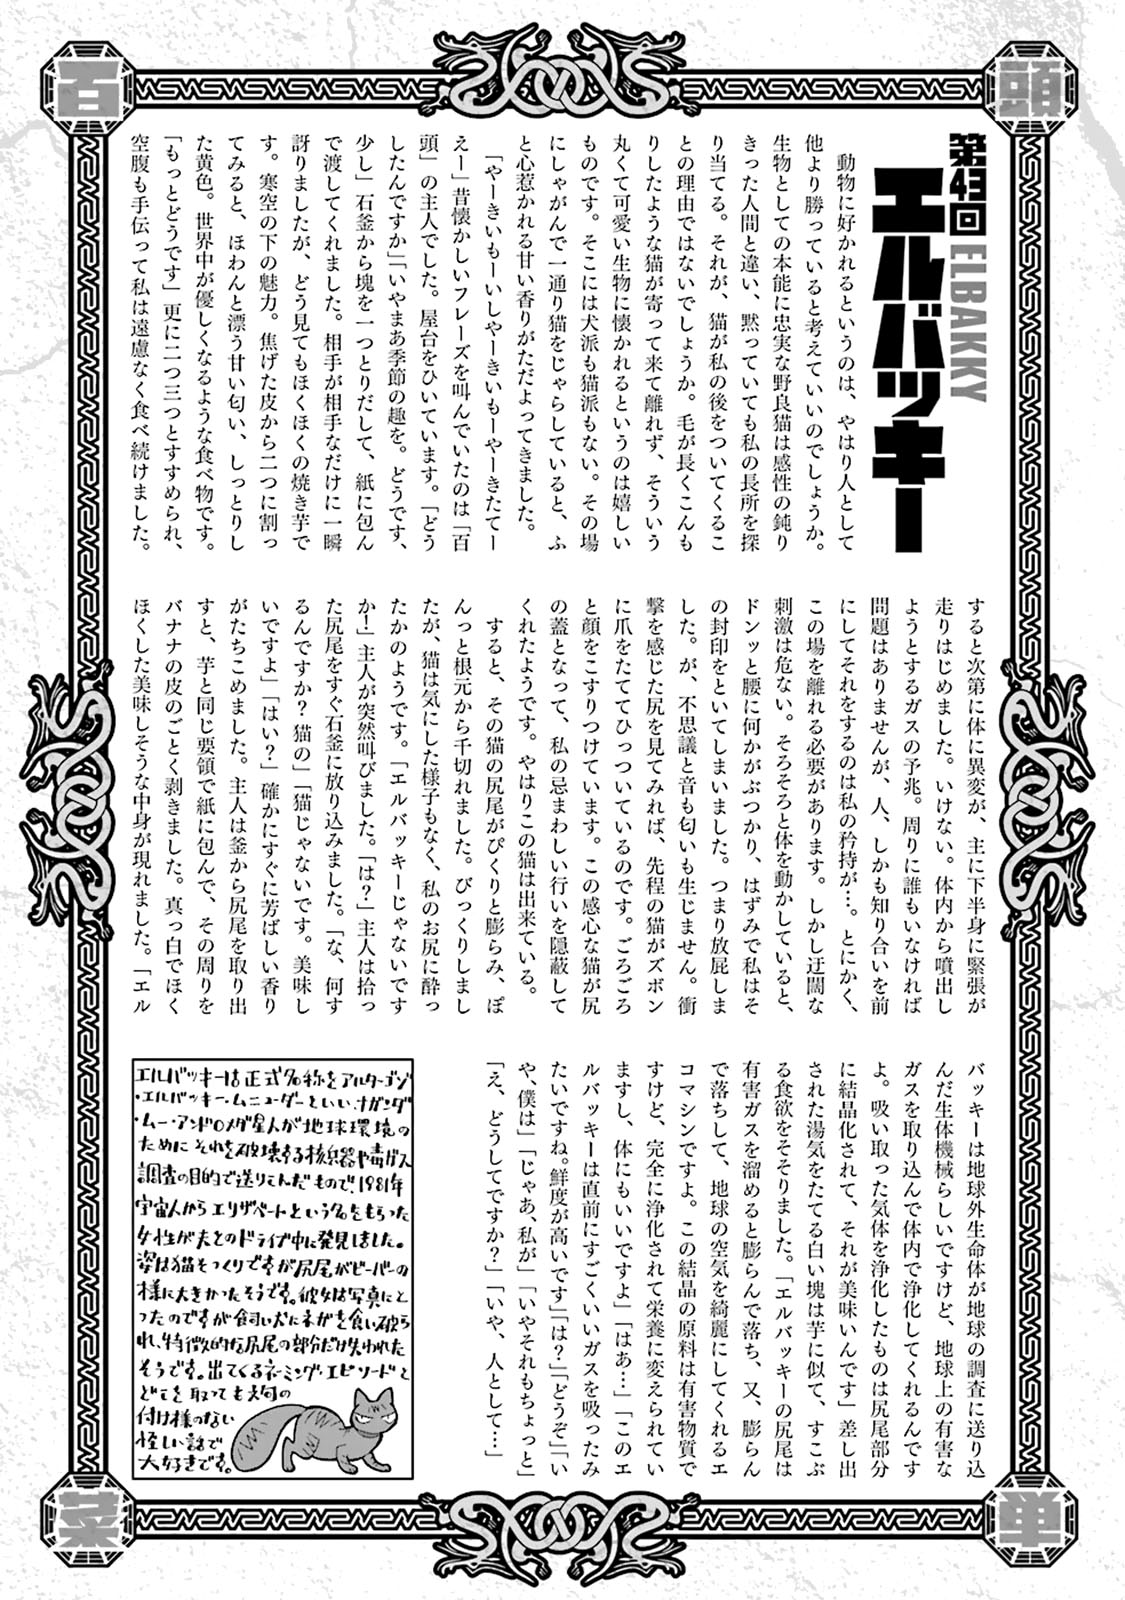 百
頭
第43回
エルバッキー
ELBAKKY
　動物に好かれるというのは、やはり人として
他より勝っていると考えていいのでしょうか。
生物としての本能に忠実な野良猫は感性の鈍り
きった人間と違い、黙っていても私の長所を探
り当てる。それが、猫が私の後をついてくるこ
との理由ではないでしょうか。毛が長くこんも
りしたような猫が寄って来て離れず、そういう
丸くて可愛い生物に懐かれるというのは嬉しい
ものです。そこには犬派も猫派もない。その場
にしゃがんで一通り猫をじゃらしていると、ふ
と心惹かれる甘い香りがただよってきました。
「やーきいもーいしやーきいもーやーきたてー
えー」昔懐かしいフレーズを叫んでいたのは「百
頭」の主人でした。屋台をひいています。「どう
したんですか」「いやまあ季節の趣を。どうです、
少し」石釜から塊を一つとりだして、紙に包ん
で渡してくれました。相手が相手なだけに一瞬
訝りましたが、どう見てもほくほくの焼き芋で
す。寒空の下の魅力。焦げた皮から二つに割っ
てみると、ほわんと漂う甘い匂い、しっとりし
た黄色。世界中が優しくなるような食べ物です。
「もっとどうです」更に二つ三つとすすめられ、
空腹も手伝って私は遠慮なく食べ続けました。
すると次第に体に異変が、主に下半身に緊張が
走りはじめました。いけない。体内から噴出し
ようとするガスの予兆。周りに誰もいなければ
問題はありませんが、人、しかも知り合いを前
にしてそれをするのは私の矜持が…。とにかく、
この場を離れる必要があります。しかし迂闊な
刺激は危ない。そろそろと体を動かしていると、
ドンッと腰に何かがぶつかり、はずみで私はそ
の封印をといてしまいました。つまり放屁しま
した。が、不思議と音も匂いも生じません。衝
撃を感じた尻を見てみれば、先程の猫がズボン
に爪をたててひっついているのです。ごろごろ
と顔をこすりつけています。この感心な猫が尻
の蓋となって、私の忌まわしい行いを隠蔽して
くれたようです。やはりこの猫は出来ている。
　すると、その猫の尻尾がぴくりと膨らみ、ぽ
んっと根元から千切れました。びっくりしまし
たが、猫は気にした様子もなく、私のお尻に酔っ
たかのようです。「エルバッキーじゃないです
か！」主人が突然叫びました。「は？」主人は拾っ
た尻尾をすぐ石釜に放り込みました。「な、何す
るんですか？猫の」「猫じゃないです。美味し
いですよ」「はい？」確かにすぐに芳ばしい香り
がたちこめました。主人は釜から尻尾を取り出
すと、芋と同じ要領で紙に包んで、その周りを
バナナの皮のごとく剥きました。真っ白でほく
ほくした美味しそうな中身が現れました。「エル
バッキーは地球外生命体が地球の調査に送り込
んだ生体機械らしいですけど、地球上の有害な
ガスを取り込んで体内で浄化してくれるんです
よ。吸い取った気体を浄化したものは尻尾部分
に結晶化されて、それが美味いんです」差し出
された湯気をたてる白い塊は芋に似て、すこぶ
る食欲をそそりました。「エルバッキーの尻尾は
有害ガスを溜めると膨らんで落ち、又、膨らん
で落ちして、地球の空気を綺麗にしてくれるエ
コマシンですよ。この結晶の原料は有害物質で
すけど、完全に浄化されて栄養に変えられてい
ますし、体にもいいですよ」「はあ…」「このエ
ルバッキーは直前にすごくいいガスを吸ったみ
たいですね。鮮度が高いです」「は？」「どうぞ」「い
や、僕は」「じゃあ、私が」「いやそれもちょっと」
「え、どうしてですか？」「いや、人として…」
エルバッキーは正式名称をアルターゴゾ
・エルバッキー・ムニューダーといい、ナガンダ
・ムー・アンドロメダ星人が地球環境の
ためにそれを破壊する核兵器や毒ガス
調査の目的で送りこんだもので、1981年
宇宙人からエリザベートという名をもらった
女性が夫とのドライブ中に発見しました。
姿は猫そっくりですが尻尾がビーバーの
様に大きかったそうです。彼女は写真にと
ったのですが飼い犬にネガを食い破ら
れ、特徴的な尻尾の部分だけ失われた
そうです。出てくるネーミング・エピソードと
どこを取っても文句の
付け様のない
怪しい話で
大好きです。
菜
単